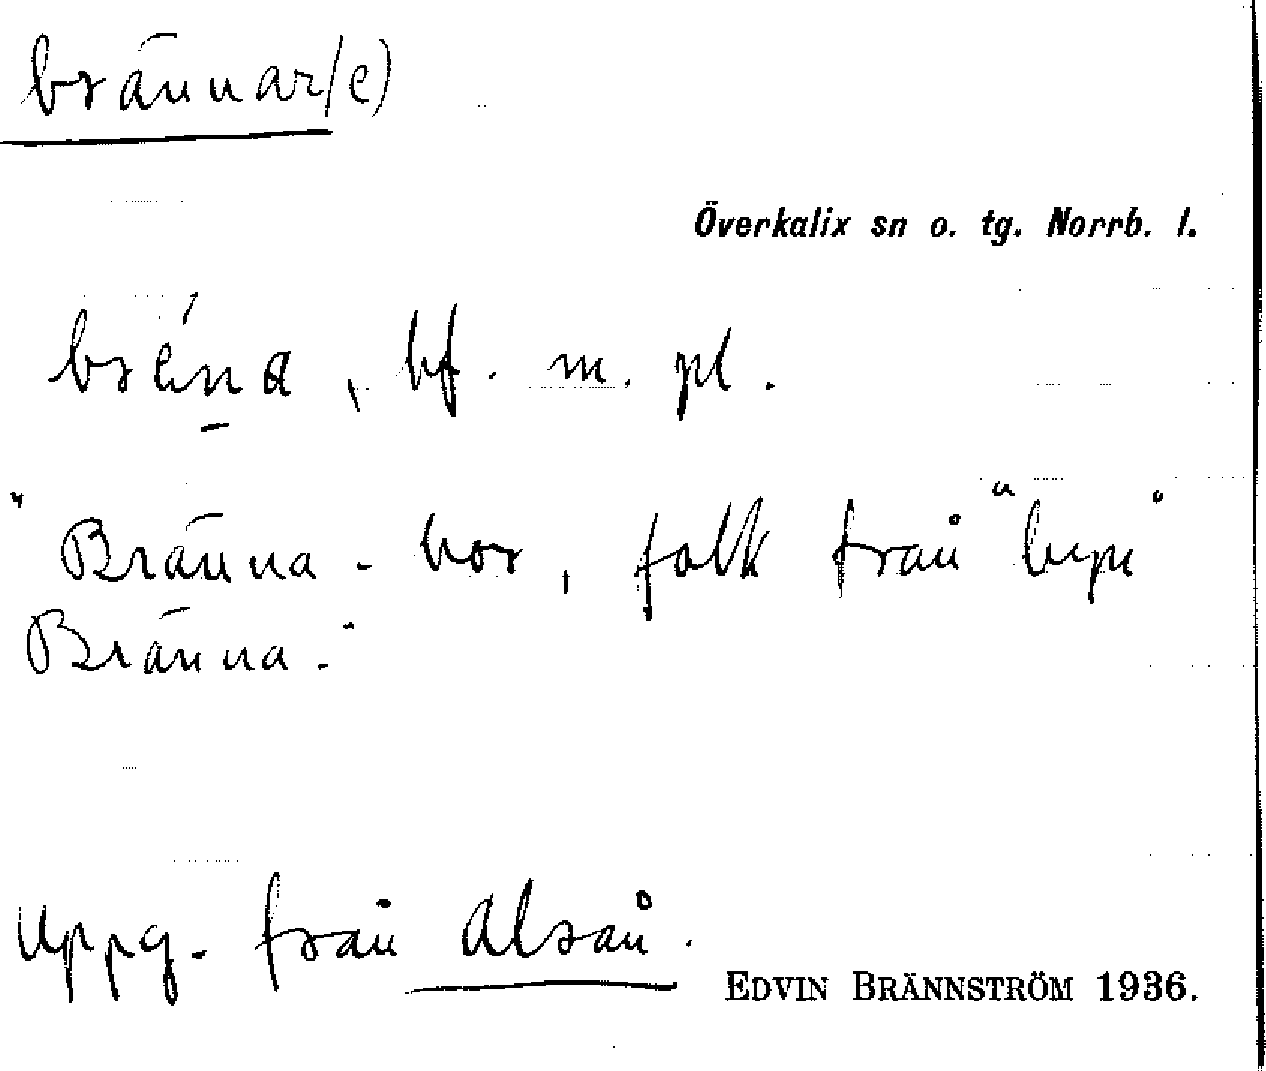 brännar/e)
Överkalix sn o. tg. Norrb. l.
bréna, bf. m. pl.
"Bränna-bor, folk från "byn"
Bränna."
Uppg. från Alsån.
EDVIN BRÄNNSTRÖM 1936.